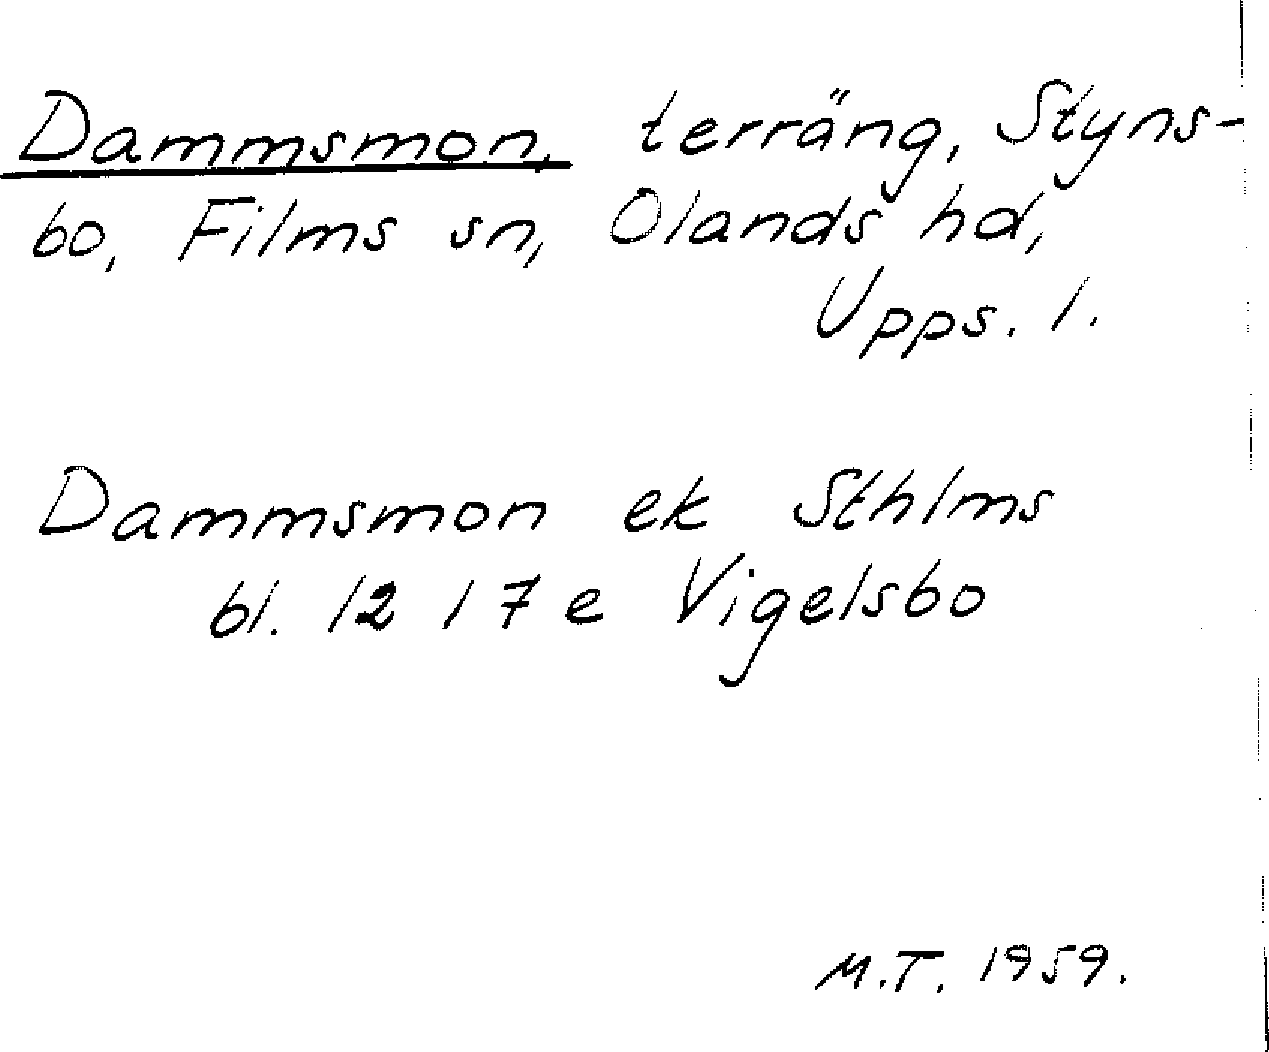 Dammsmon, terräng, Styns-
bo, Films sn, Olands hd,
Upps. l.
Dammsmon ek Sthlms
bl. 12 I 7 e Vigelsbo
M.T. 1959.